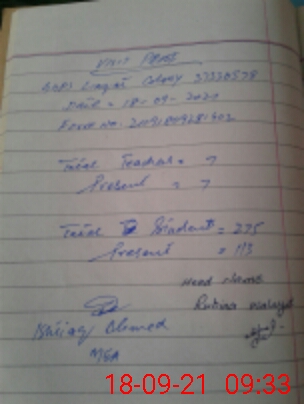 Visit Proof
GGPS Liaqat Colony 37330578
Date = 18-09-2021
Form No. 20191009281402
Total Teachers = 7
Present = 7
Total Students = 275
Present = 113
Head Name
Rubina
Ishtiaq Ahmed
MEA
18-09-21 09:33